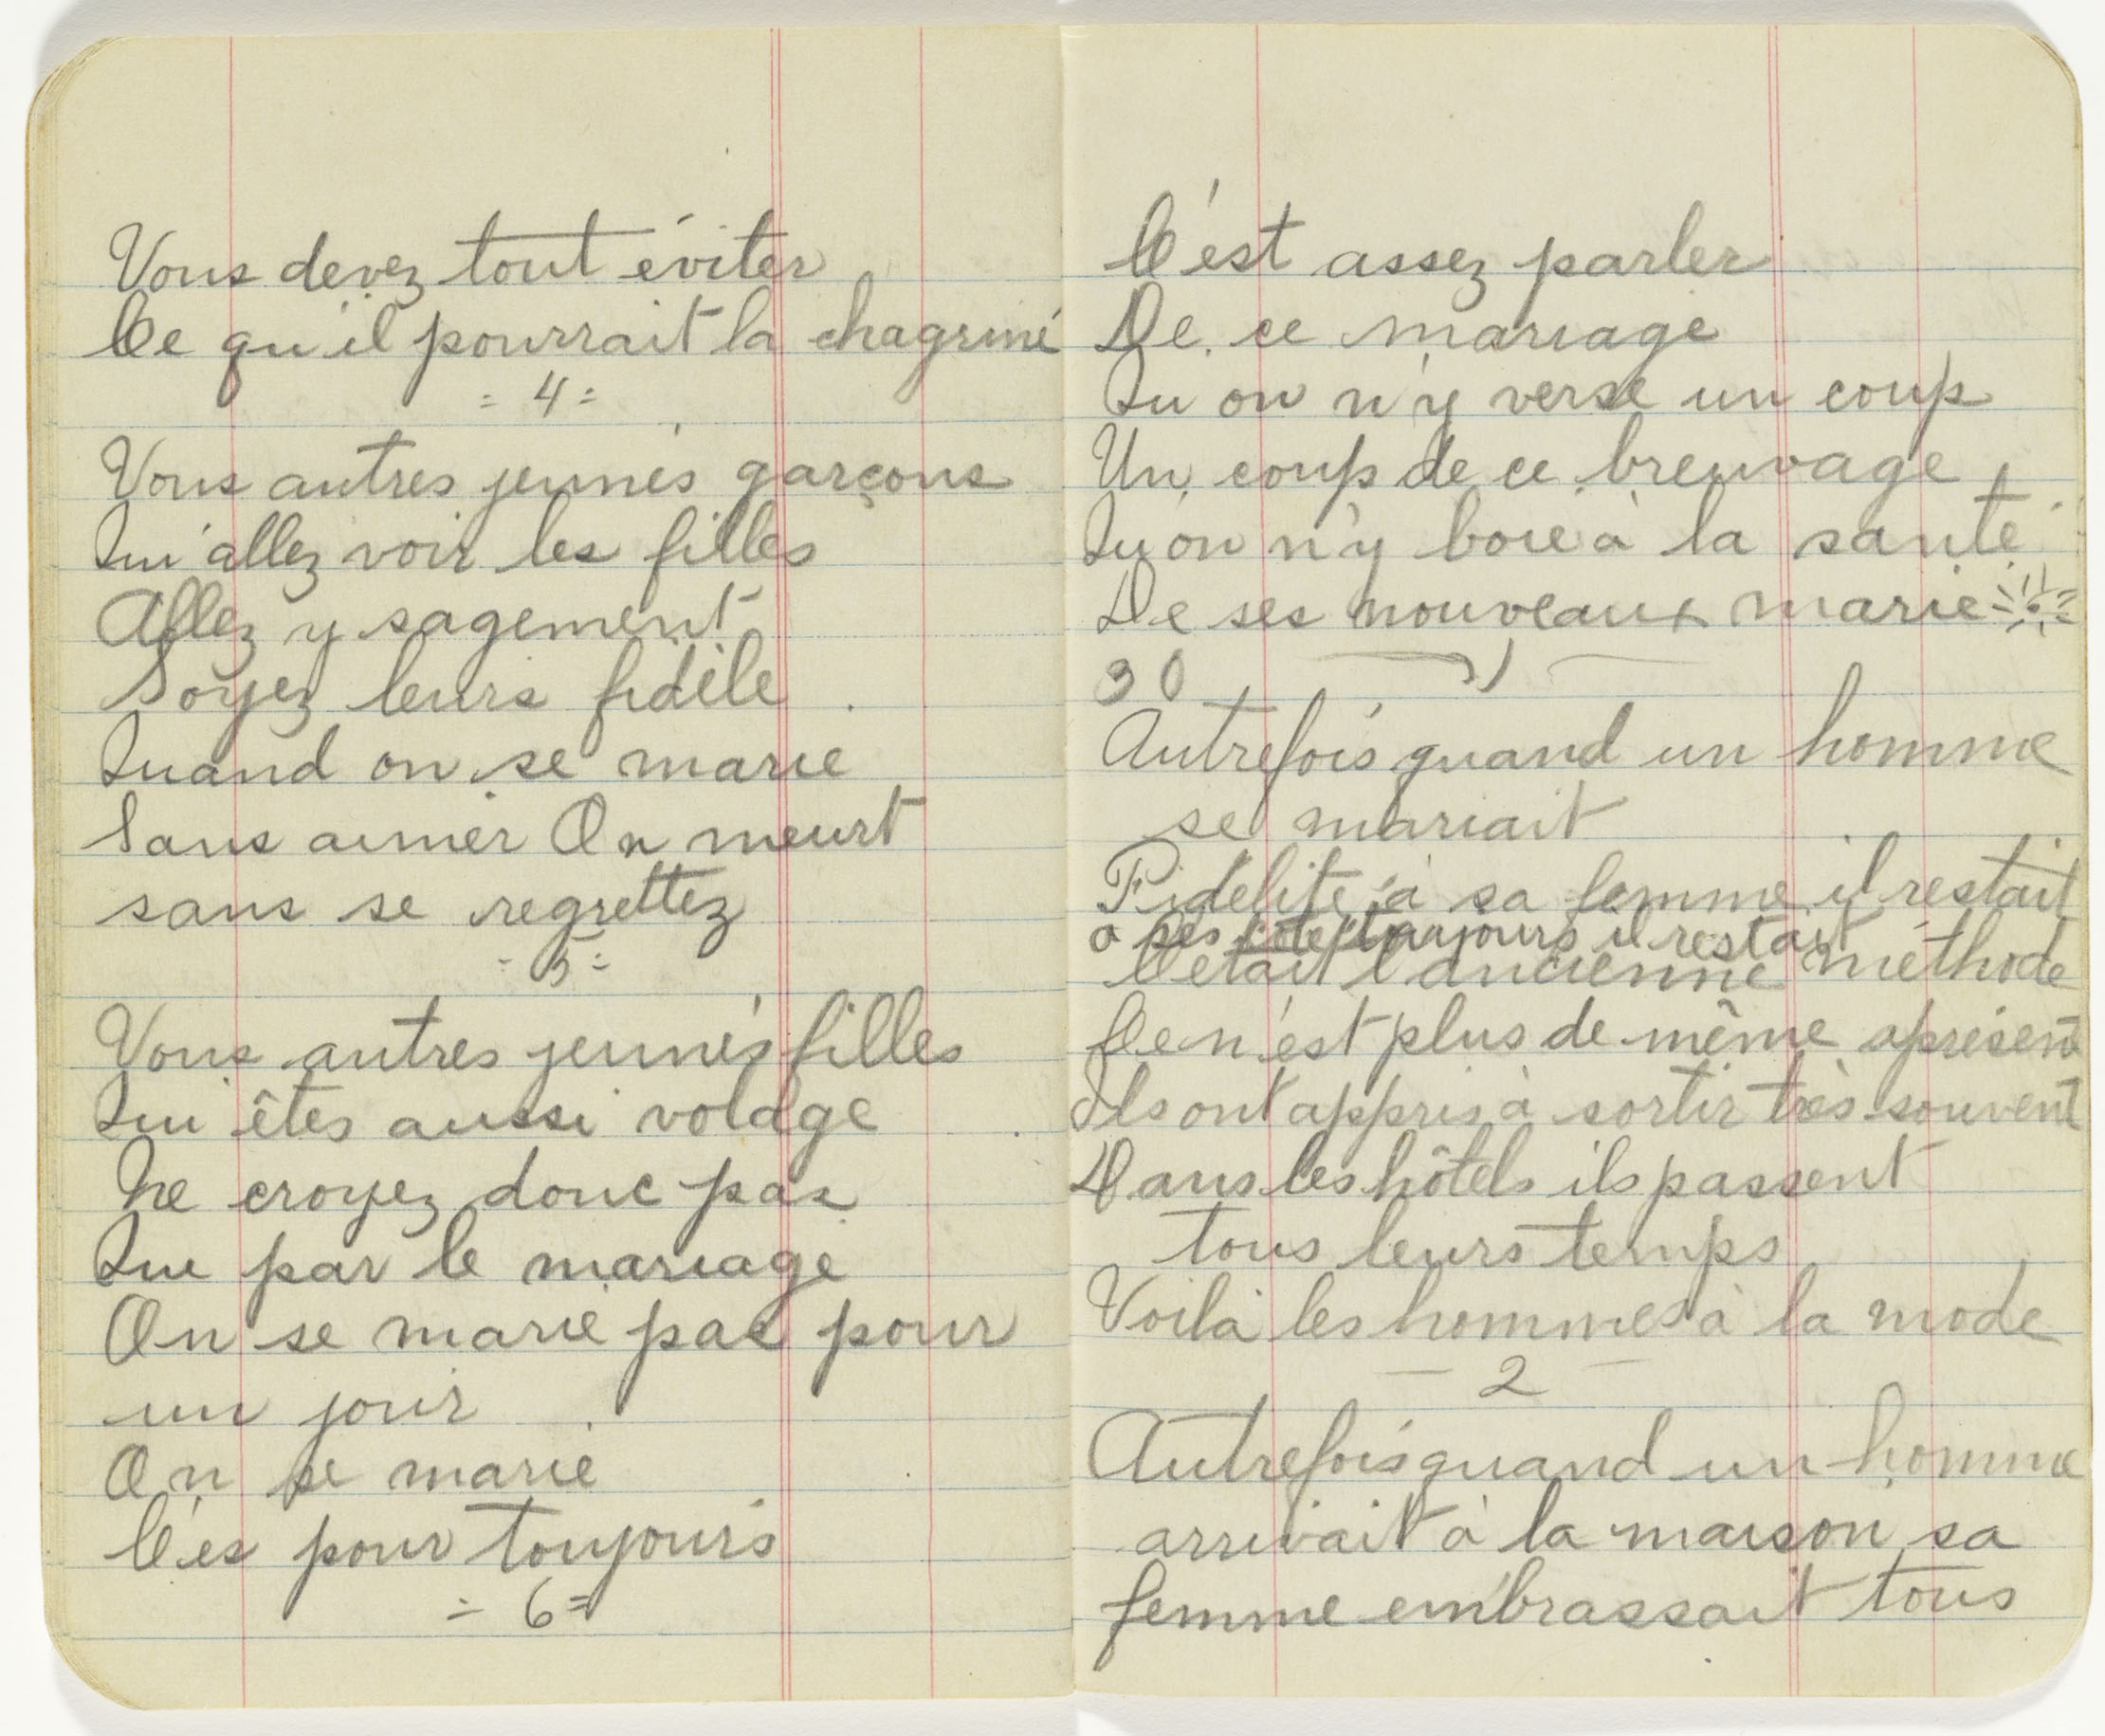 Vous devez tout éviter
Ce qu'il pourrait la chagriné
= 4 =
Vous autres jeunes garçons
Qui allez voir les filles
Allez y sagement
Soyez leurs fidèle
Quand on se marie
Sans aimer On meurt
sans se regrettez
- 5 =
Vous autres jeunes filles
Qui êtes aussi volage
Ne croyez donc pas
Que par le mariage
On se marie pas pour
un jour
On se marie
C'es pour toujours
- 6 =
C'est assez parler
De ce mariage
Qu on n'y verse un coup
Un coup de ce breuvage
Qu'on n'y boie à la santé
De ses nouveaux marie
30
Autrefois quand un homme
se mariait
Fidelite à sa femme il restait
a ses coté toujours il restait
C'était l'ancienne méthode
Ce n'est plus de même aprésent
Ils ont appris à sortir très souvent
Dans les hôtels ils passent
tous leurs temps
Voilà les hommes à la mode
- 2 -
Autrefois quand un homme
arrivait à la maison sa
femme embrassait tous